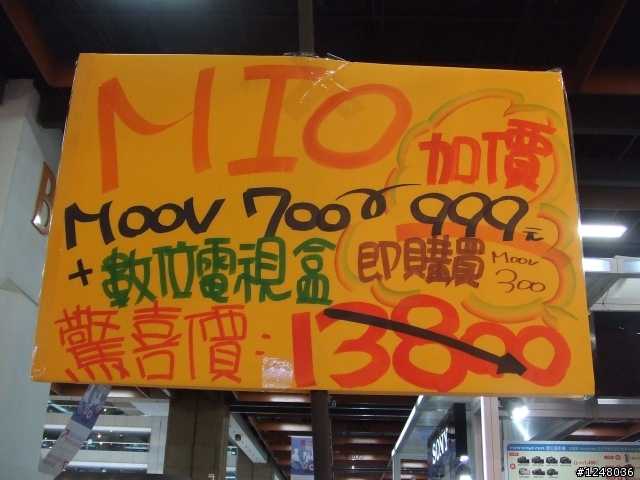 MIO
加價
MOOV 700 999元
+數位電視盒
即購買 MOOV 300
驚喜價:13800
B
SONY
#1248036